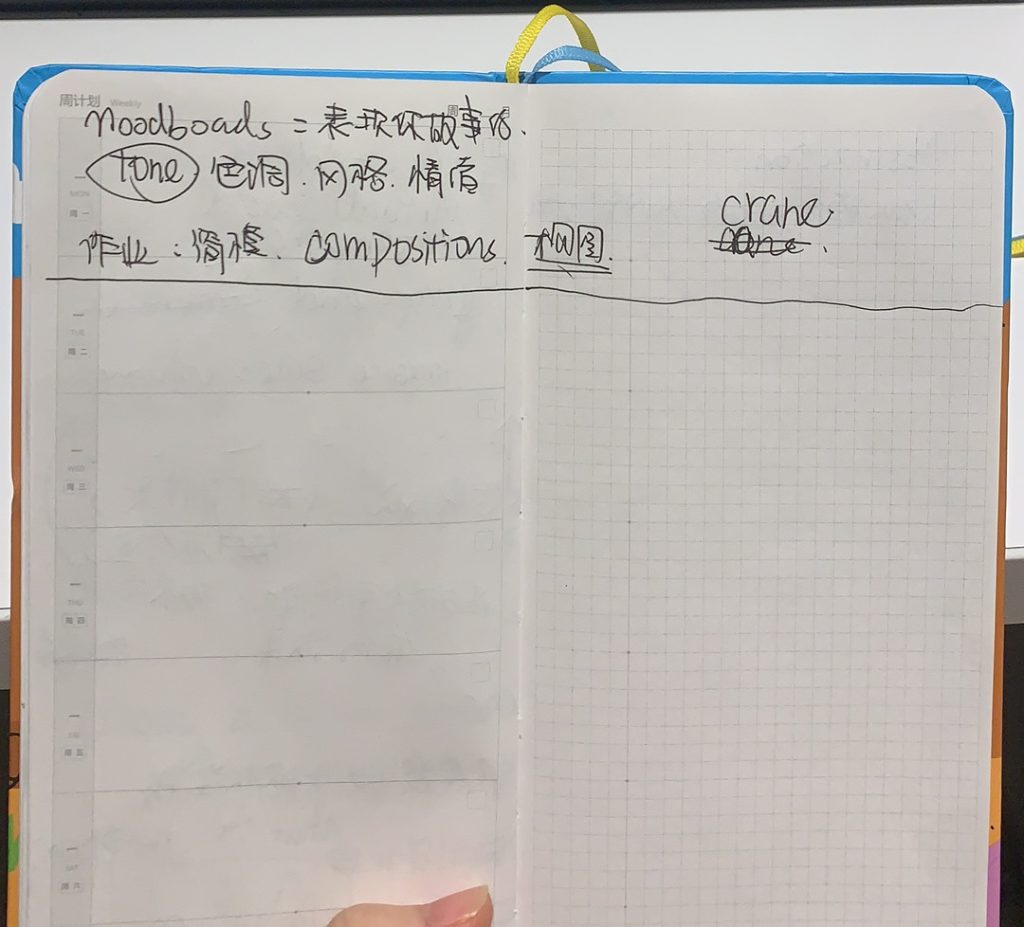 周计划 Weekly
moodboads = 表现你做事的.
tone 色调. 风格. 情绪
作业: . compositions. 构图.
crane.
MON
周一
TUE
周二
WED
周三
THU
周四
周五
SAT
周六